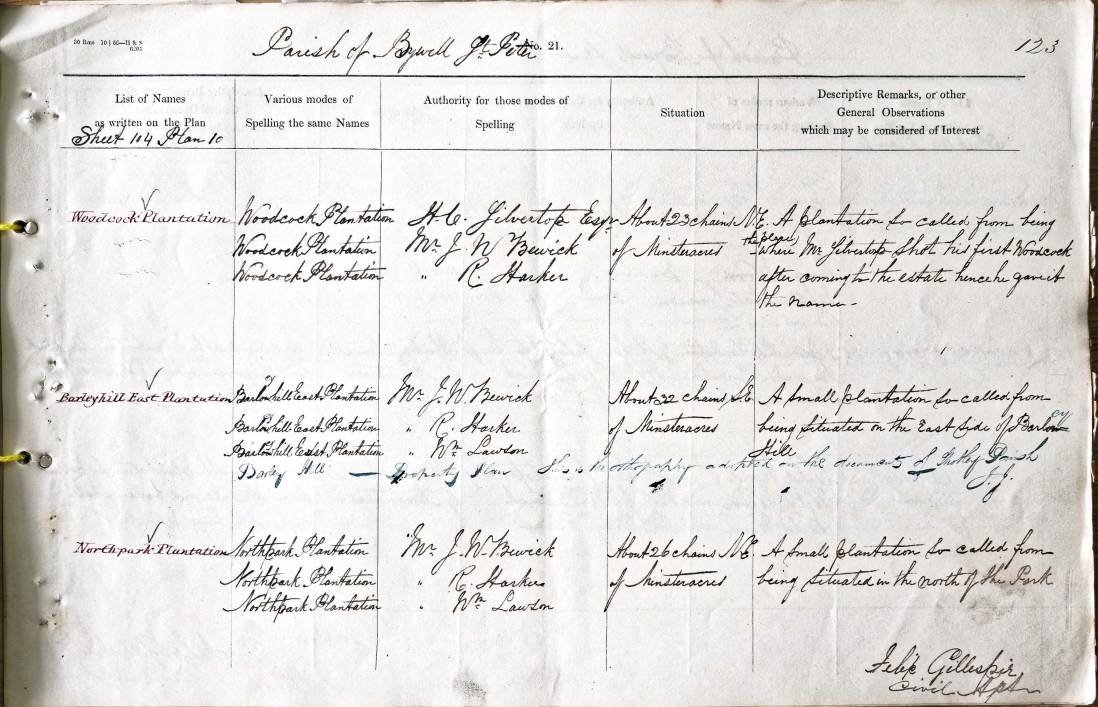 Parish of Bywell St. Peter No. 21. 123
List of Names
as written on the Plan
Sheet 104 Plan 10
Various modes of
Spelling the same Names
Authority for those modes of
Spelling
Situation
Descriptive Remarks, or other
General Observations
which may be considered of Interest
Woodcock Plantation
Woodcock Plantation
Woodcock Plantation
Woodcock Plantation
H. C. Silvertop Esqr
Mr. J. W Bewick
" R. Harker
About 23 chains N.E.
of Minsteracres
A plantation so called from being
the place
where Mr Silvertop shot his first Woodcock
after coming to the estate hence he gave it
the name -
Barleyhill East Plantation
Barlowhill East Plantation
Barlowhill East Plantation
Barlowhill East Plantation
Mr. J. W. Bewick
" R. Harker
" Wm Lawson
About 32 chains S.E
of Minsteracres
A small plantation so called from
being situated on the East side of Barlow
Hill
Barley Hill — Property Plan This is the orthography adopted on the documents of Shotley Parish
J. G.
Northpark Plantation
Northpark Plantation
Northpark Plantation
Northpark Plantation
Mr. J. W. Bewick
" R. Harker
" Wm Lawson
About 26 chains N.E.
of Minsteracres
A small plantation so called from
being situated in the north of the Park
Felix Gillespie
Civil Asst